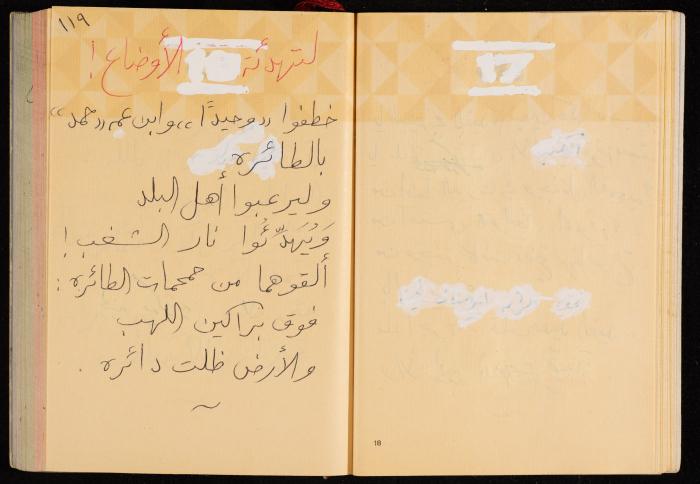 ١١٩
لتهدئة الأوضاع!
خطفوا «وحيدًا»، وابن عمه «حمد»
بالطائره
وليرعبوا أهل البلد
وَيُهَدِّئُوا نار الشغب!
ألقوهما من حمحمات الطائره:
فوق براكين اللهب
والأرض ظلت دائره.
17
18